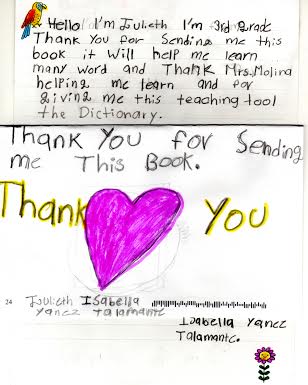 Hello I'm Julieth I'm 3rd grade
Thank You for Sending me this
book it Will help me learn
many word and Thank Mrs.Molina
helping me learn and for
giving me this teaching tool
the Dictionary.
Thank You for Sending
me This Book.
Thank You
24 Julieth ISabella
Yanez Talamante
Isabella Yanez
Talamante.